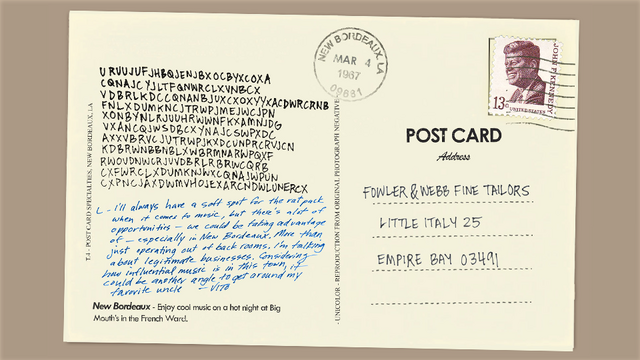 URUUJUFJHBQJENJBXOCBYXCOXA
CQNAJCYJLTFQNWRCLXVNBCX
VDBRLKDCCQNANBJUXCXOXYYXACDWRCRNB
FNLXDUMKNCJTRWPJMEJWCJPN
XONBYNLRJUUHRWWNFKXAMNJDG
VXANCQJWSDBCXYNAJCRWPXDC
AXXVBRVCJUTRWPJKXDCUNPRCRVJCN
KDBRWNBBNBLXWBRMNARWPQXF
RWOUDNWCRJUVDBRLRBRWCQRB
CXFWRCLXDUMKNJWXCQNAJWPUN
CXPNCJAXDWMVHOJEXARCNDWLUNERCX
L - I'll always have a soft spot for the rat pack
when it comes to music, but there's alot of
opportunities - we could be taking advantage
of - especially in New Bordeaux. More than
just operating out of back rooms. I'm talking
about legitimate businesses. Considering
how influential music is in this town, it
could be another angle to get around my
favorite uncle - VITO
New Bordeaux - Enjoy cool music on a hot night at Big
Mouth's in the French Ward.
T.4 - POST CARD SPECIALTIES, NEW BORDEAUX, LA
- UNICOLOR - REPRODUCTION FROM ORIGINAL PHOTOGRAPH NEGATIVE
NEW BORDEAUX, LA
MAR 4
1967
09661
JOHN F. KENNEDY
13¢
UNITED STATES
POST CARD
Address
FOWLER & WEBB FINE TAILORS
LITTLE ITALY 25
EMPIRE BAY 03491